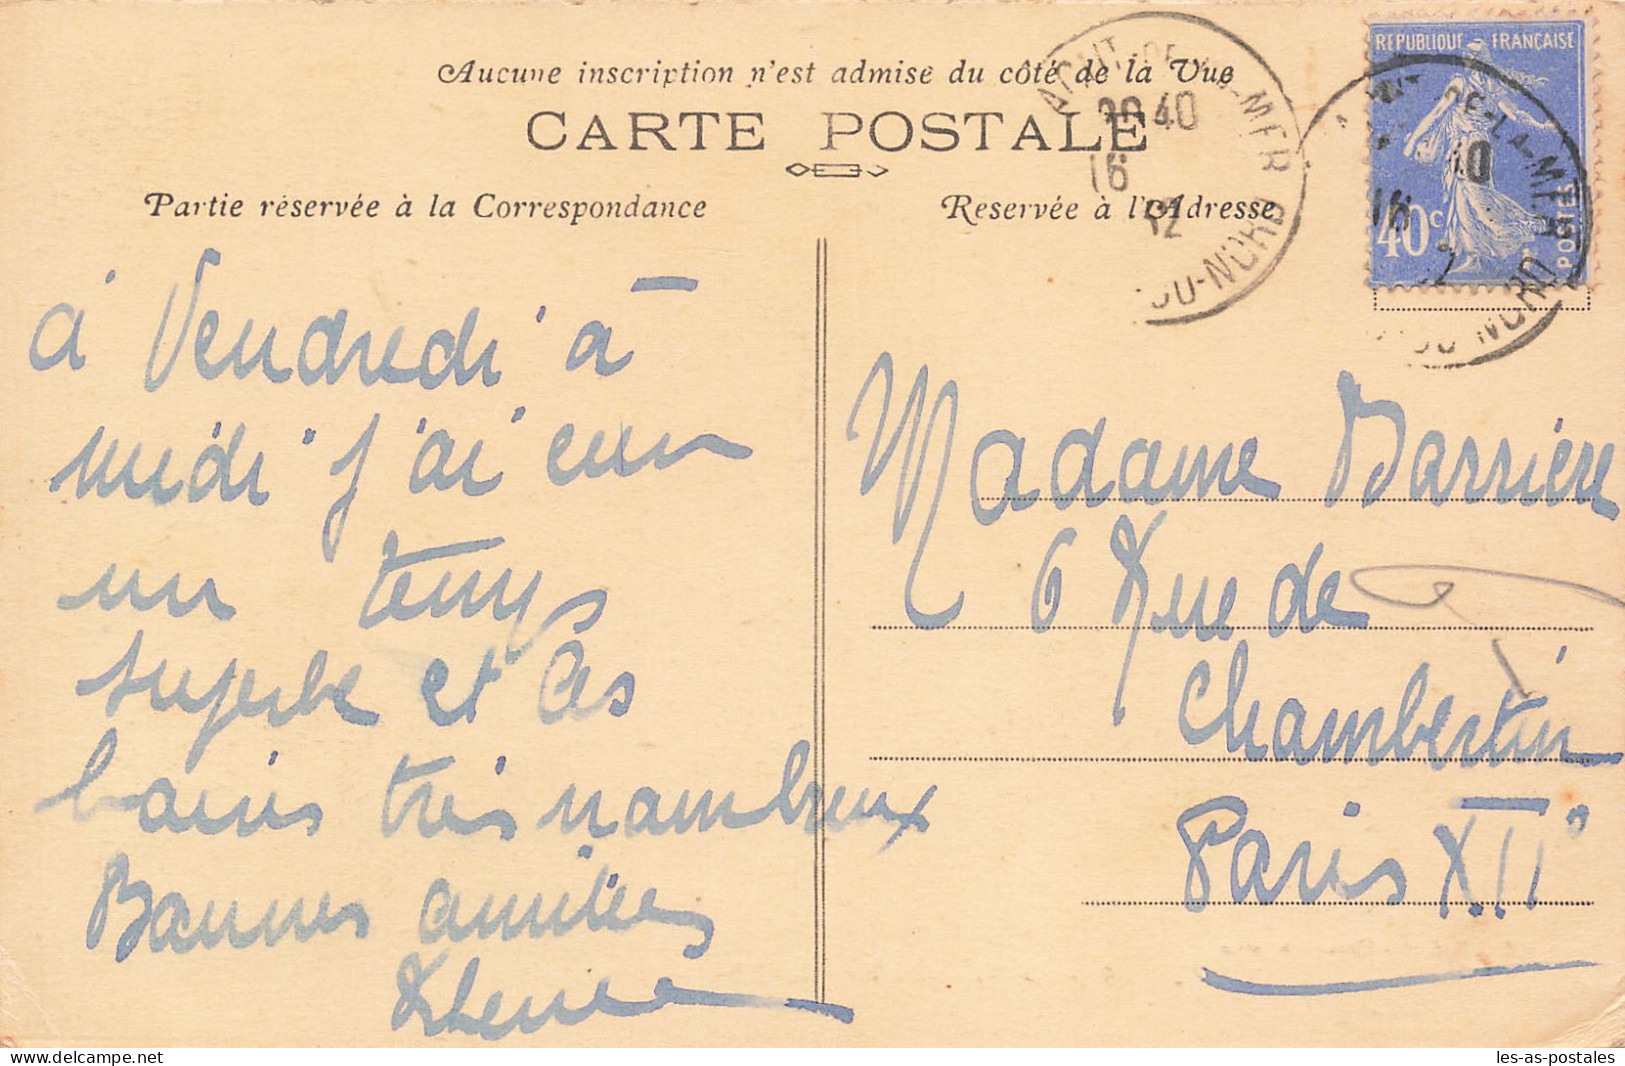 Aucune inscription n'est admise du côté de la Vue
CARTE POSTALE
Partie réservée à la Correspondance
Reservée à l'Adresse
REPUBLIQUE FRANÇAISE
40c
POSTES
DE-LA-MER
20 40
16
12
DU-NORD
à Vendredi à
midi j'ai eu
un temps
superbe et les
bains très nombreux
Bonnes amitiés
Madame Barrière
6 Rue de
Chambertin
Paris XII°
http://www.delcampe.net
les-as-postales